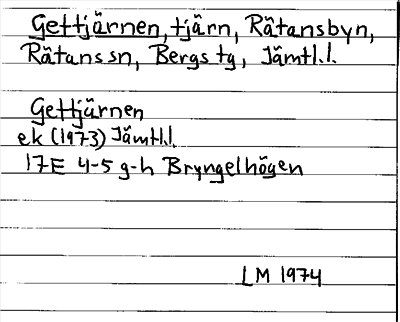 Gettjärnen, tjärn, Rätansbyn,
Rätans sn, Bergs tg, Jämtl.l.
Gettjärnen
ek (1973) Jämtl.l.
17E 4-5 g-h Bryngelhögen
LM 1974